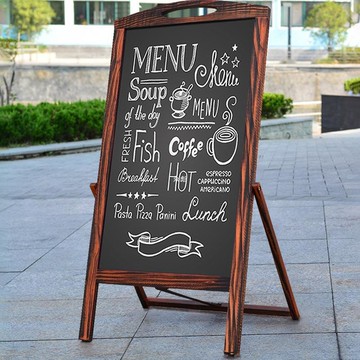 MENU
Menu
Soup
of the day
MENU
FRESH
Fish
Coffee
Breakfast
Hot
ESPRESSO
CAPPUCCINO
AMERICANO
Pasta Pizza Panini
Lunch